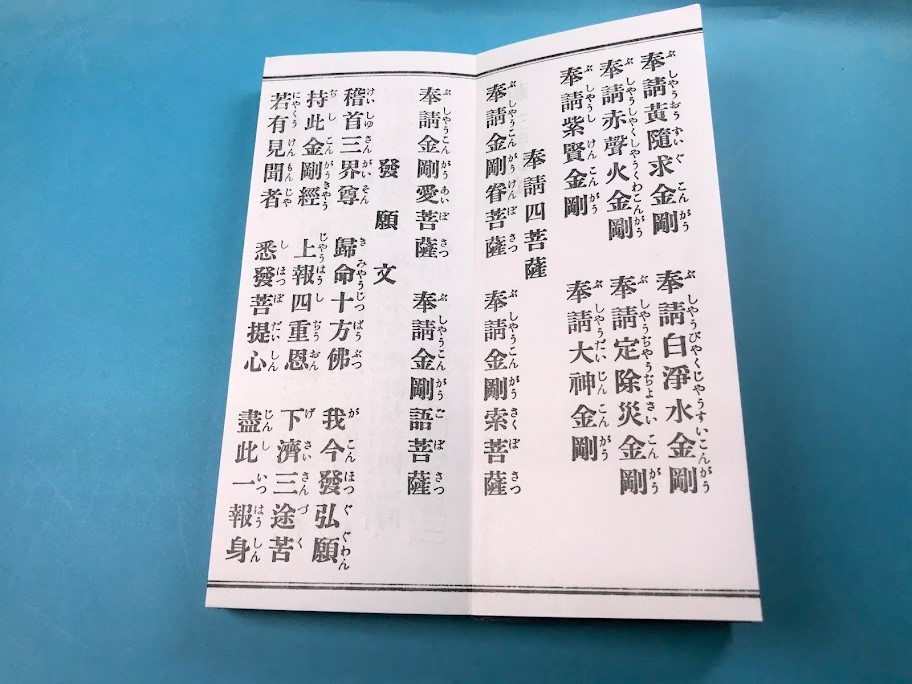 奉請黃隨求金剛　奉請白淨水金剛
奉請赤聲火金剛　奉請定除災金剛
奉請紫賢金剛　奉請大神金剛
奉請四菩薩
奉請金剛眷菩薩　奉請金剛索菩薩
奉請金剛愛菩薩　奉請金剛語菩薩
發願文
稽首三界尊　歸命十方佛　我今發弘願
持此金剛經　上報四重恩　下濟三途苦
若有見聞者　悉發菩提心　盡此一報身